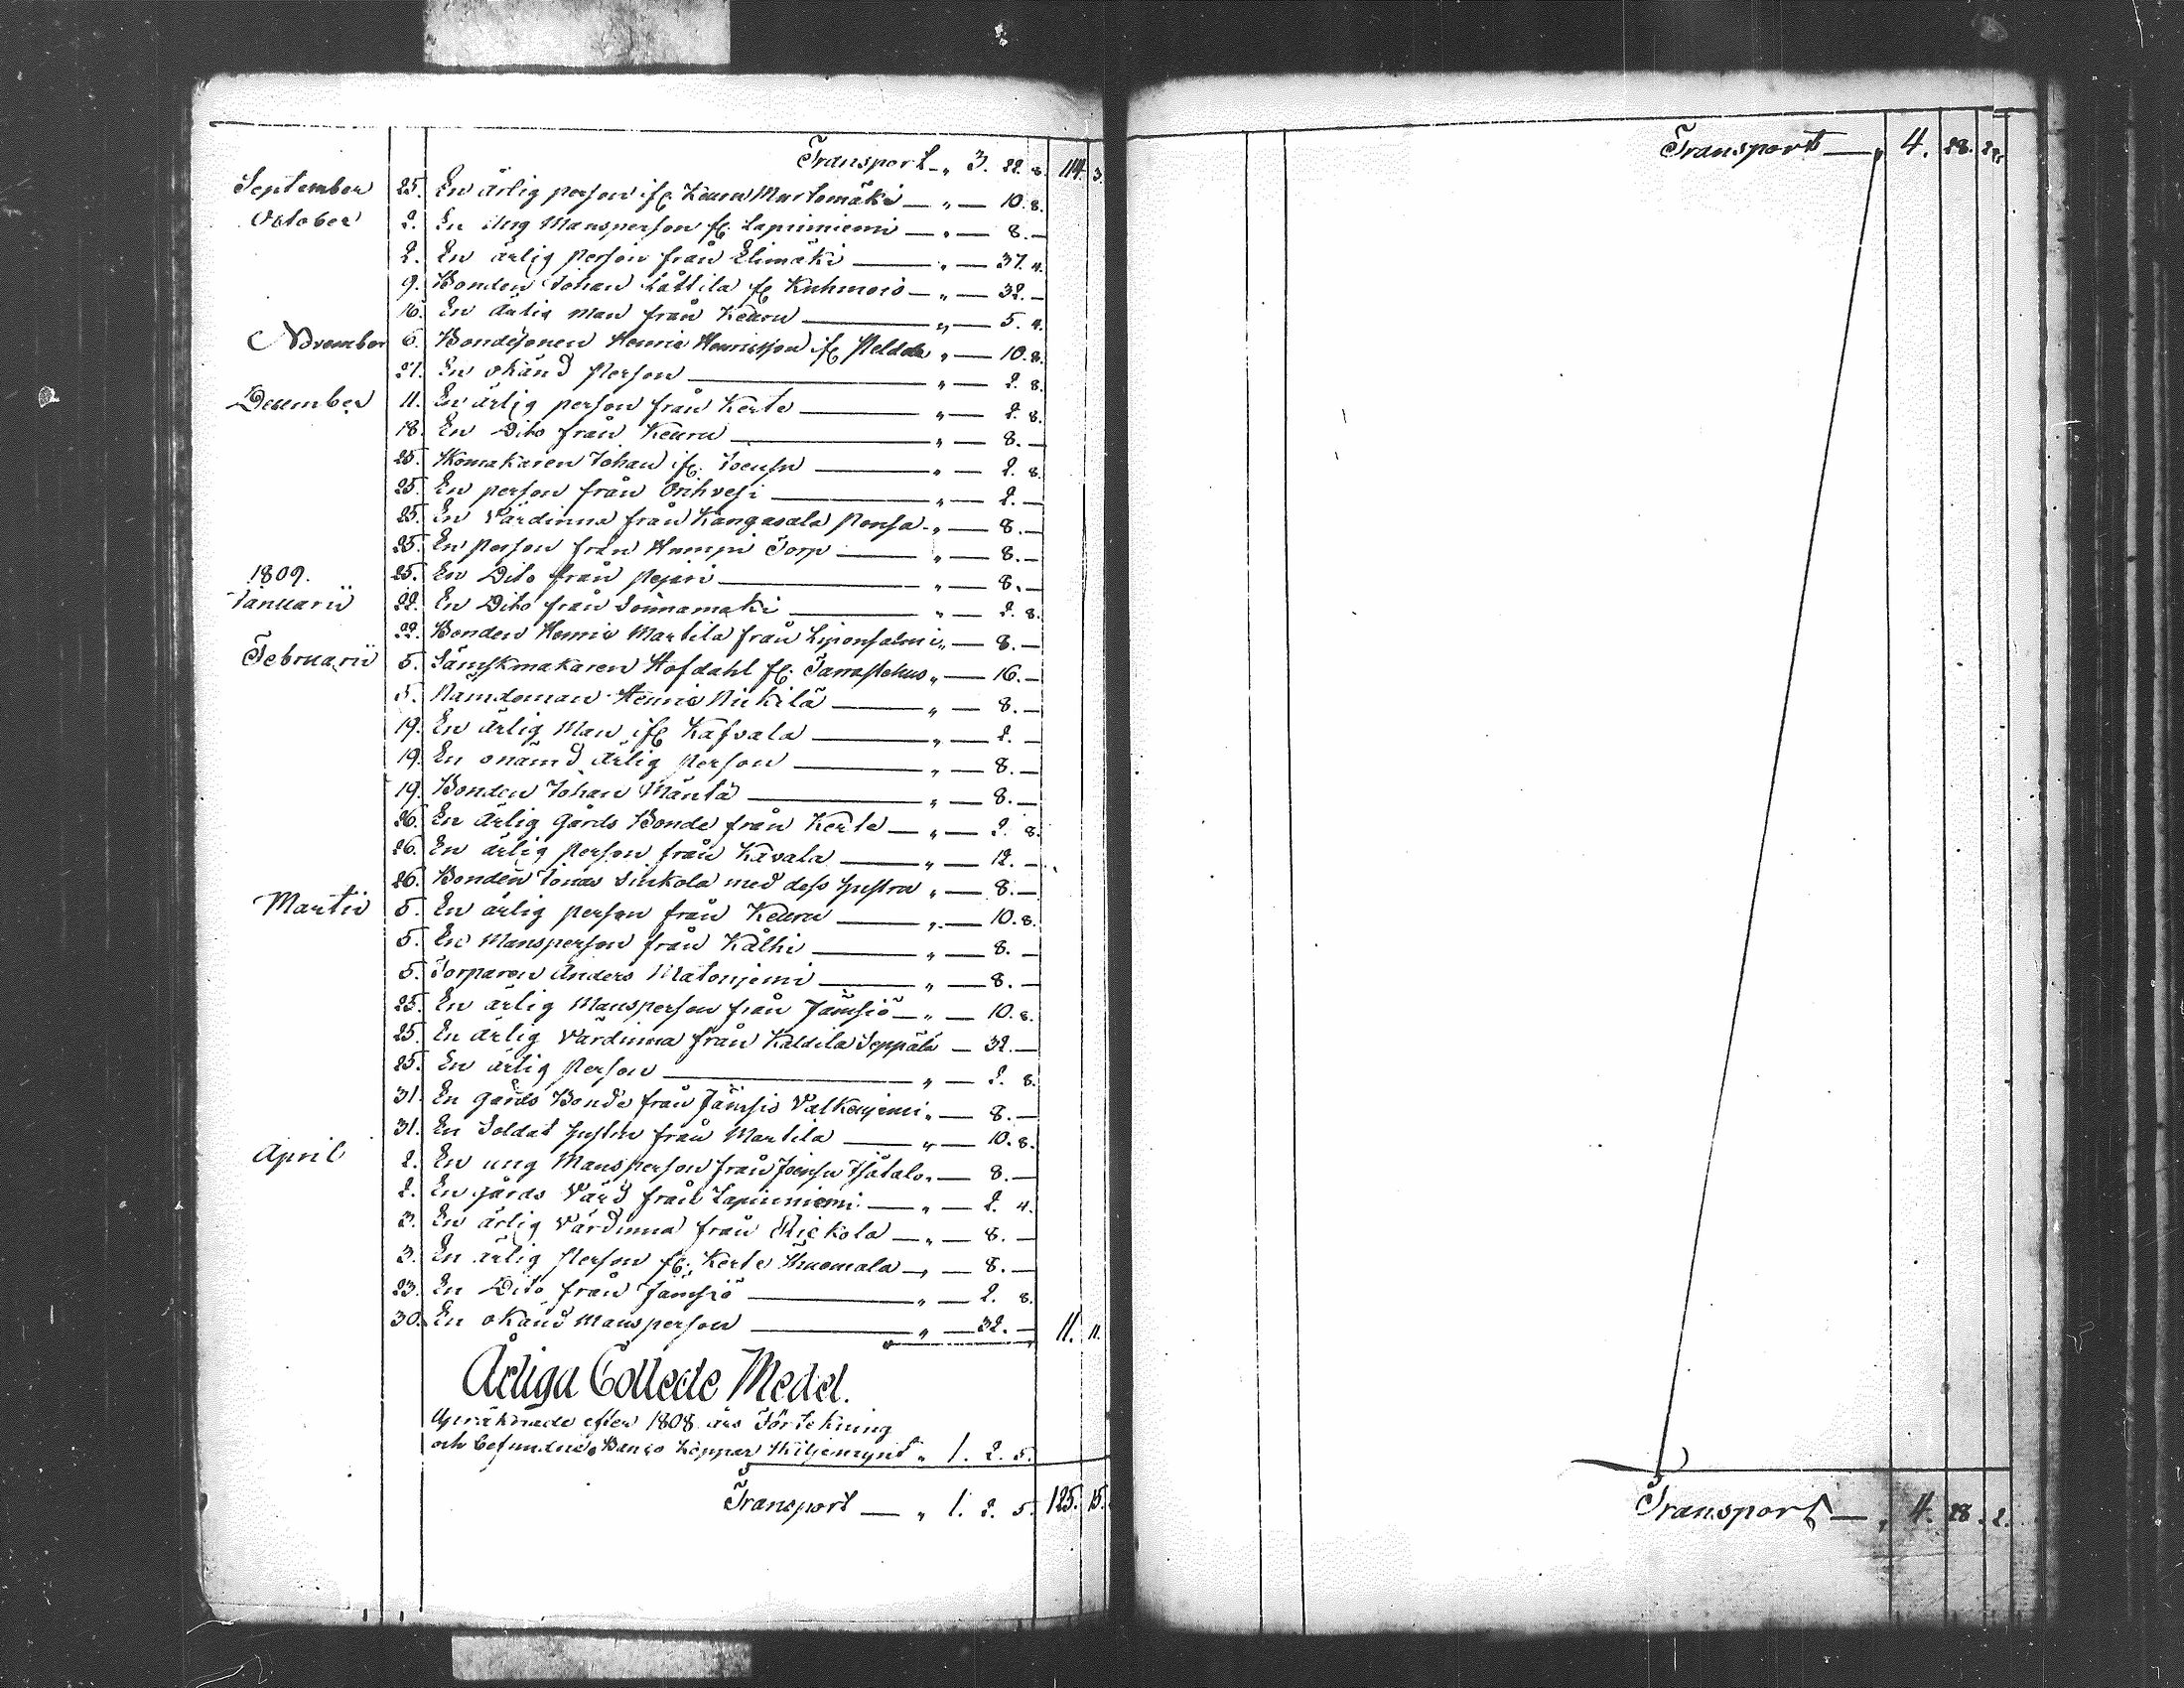 Transport „ 3. 22. 8. 114. 3.
September 25. En ärlig person if: Keuru Martomäki — „ — 10. 8.
October 2. En ung Mansperson fr: Lapinniemi — „ — 8. —
2. En ärlig Person från Elimäki — „ — 37. 4.
9. Bonden Johan Låttila fr Kuhmois — „ — 32. —
16. En ärlig man från Keuru — „ — 5. 4.
November 6. Bondesonen Henric Henricsson if „ — 10. 8.
27. En okänd Person — „ — 2. 8.
December 11. En ärlig person från Kerte — „ — 2. 8.
18. En Dito från Keuru — „ — 8. —
25. Skomakaren Johan if: Joensu — „ — 2. 8.
25. En person från Orihvesi — „ — 2. —
25. En Värdinna från Kangasala Ponsa „ — 8. —
25. En Person från Humpi Torp — „ — 8. —
1809.
25. En Dito från — „ — 8. —
Januarii 22. En Dito från — „ — 2. 8.
22. Bonden Henric Martila från „ — 8. —
Februarii 5. Sämskmakaren Hofdahl fr: Tavastehus „ — 16. —
5. Nämdeman Henric — „ — 8. —
19. En ärlig Man if Kafvala — „ — 2. —
19. En onämd ärlig Person — „ — 8. —
19. Bonden Johan Mäntä — „ — 8. —
26. En ärlig Gårds Bonde från Kerte — „ — 2. 8.
26. En ärlig Person från Kavala — „ — 12. —
26. Bonden Jonas Sinkola med dess hustru „ — 8. —
Martii 5. En ärlig person från Keuru — „ — 10. 8.
5. En Mansperson från Kålhi — „ — 8. —
5. Torparen Anders Matoniemi — „ — 8. —
25. En ärlig Mansperson från Jämsiö — „ — 10. 8.
25. En ärlig Värdinna från Kaldila Seppälä — 32. —
25. En ärlig Person — „ — 2. 8.
31. En Gårds Bonde från Jämsiö „ — 8. —
31. En Soldat hustru från Martila — „ — 10. 8.
April 2. En ung Mansperson från Joensu „ — 8. —
2. En gårds Värd från Lapinniemi — „ — 2. 4.
3. En ärlig Värdinna från — „ — 8. —
3. En ärlig Person fr: Kerte — „ — 8. —
23. En Dito från Jämsiö — „ — 2. 8.
30. En okänd Mansperson — „ — 32. — 11. 11.
Årliga Collecte Medel.
Upräknade efter 1808 års Förtekning
och befundne Banco Koppar Skiljemynt „ 1. 2. 5.
Transport — „ 1. 2. 5. 125. 15.
Transport — „ 4. 28. 2.
Transport — „ 4. 28. 2.